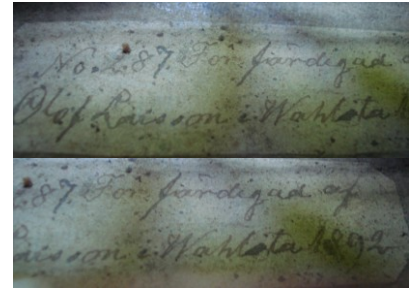 No. 287. För färdigad a
Olof Larsson i Wahlsta
287. För färdigad af
Larsson i Wahlsta 1892